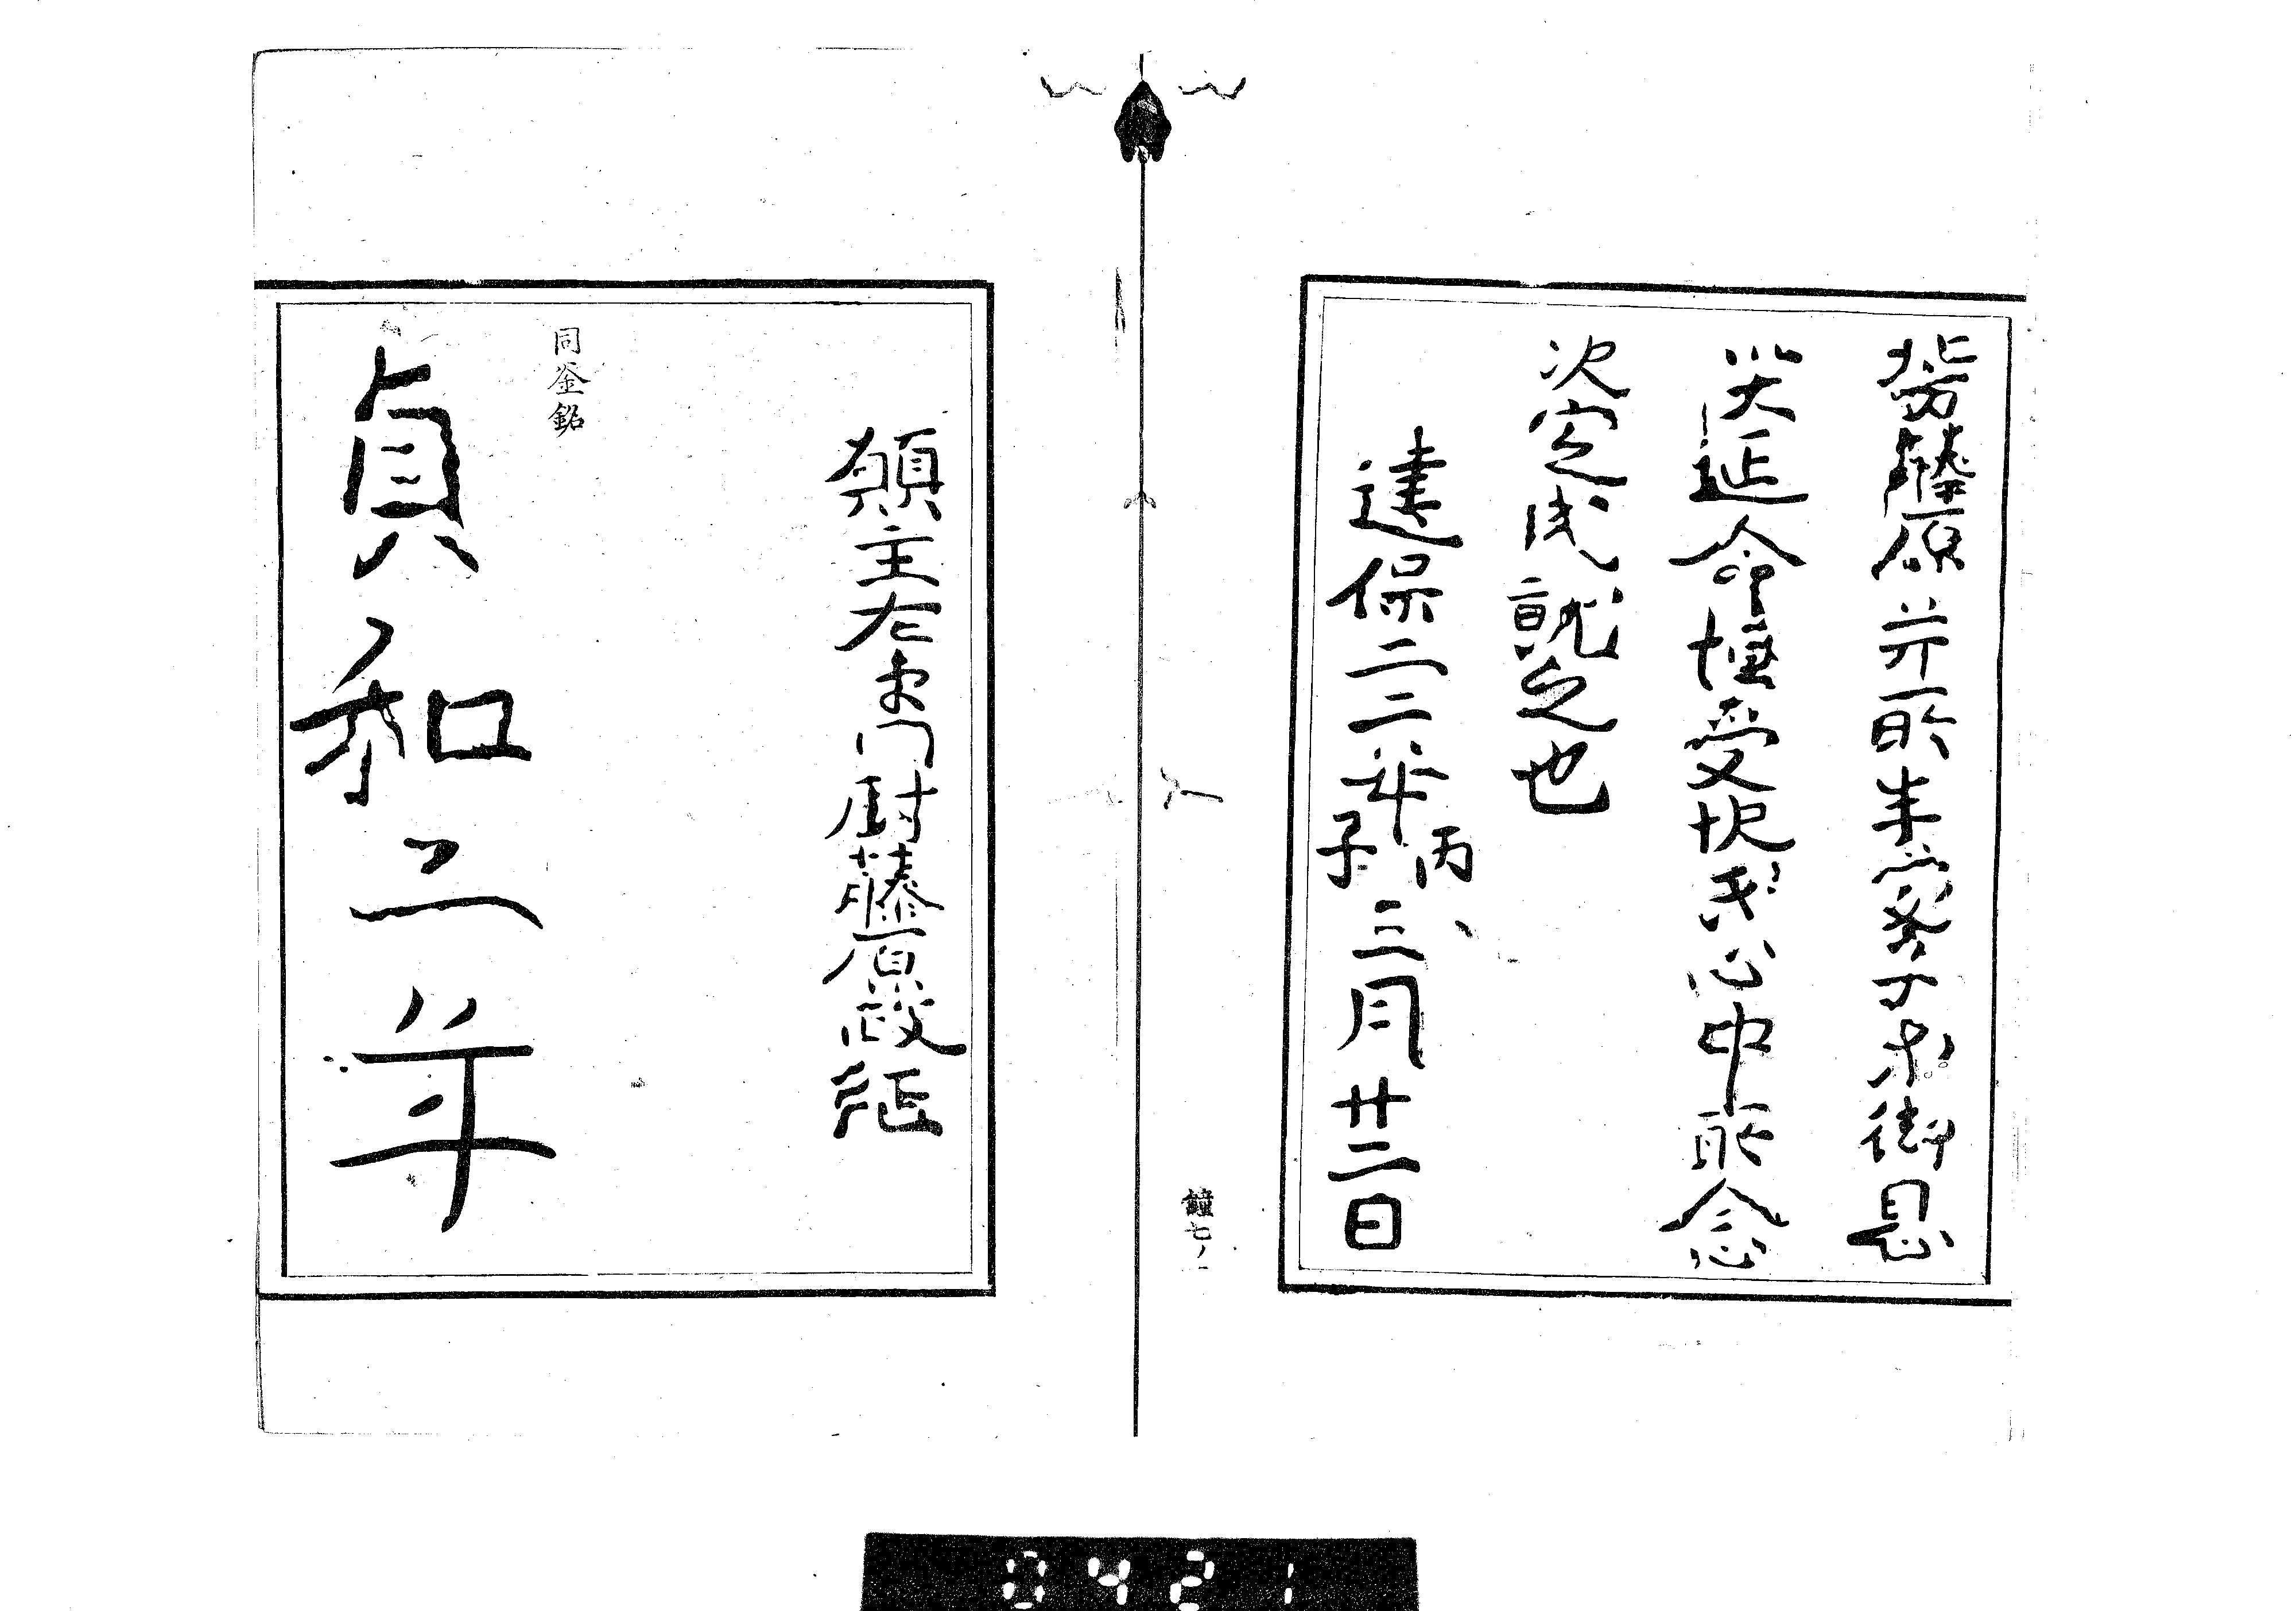 藤原并所子御息
災延命受心中所念
次定成就之也
建保二二年丙子三月廿二日
鐘七ノ一
願主左衛門尉藤原政延
同釜銘
貞和二年
0421